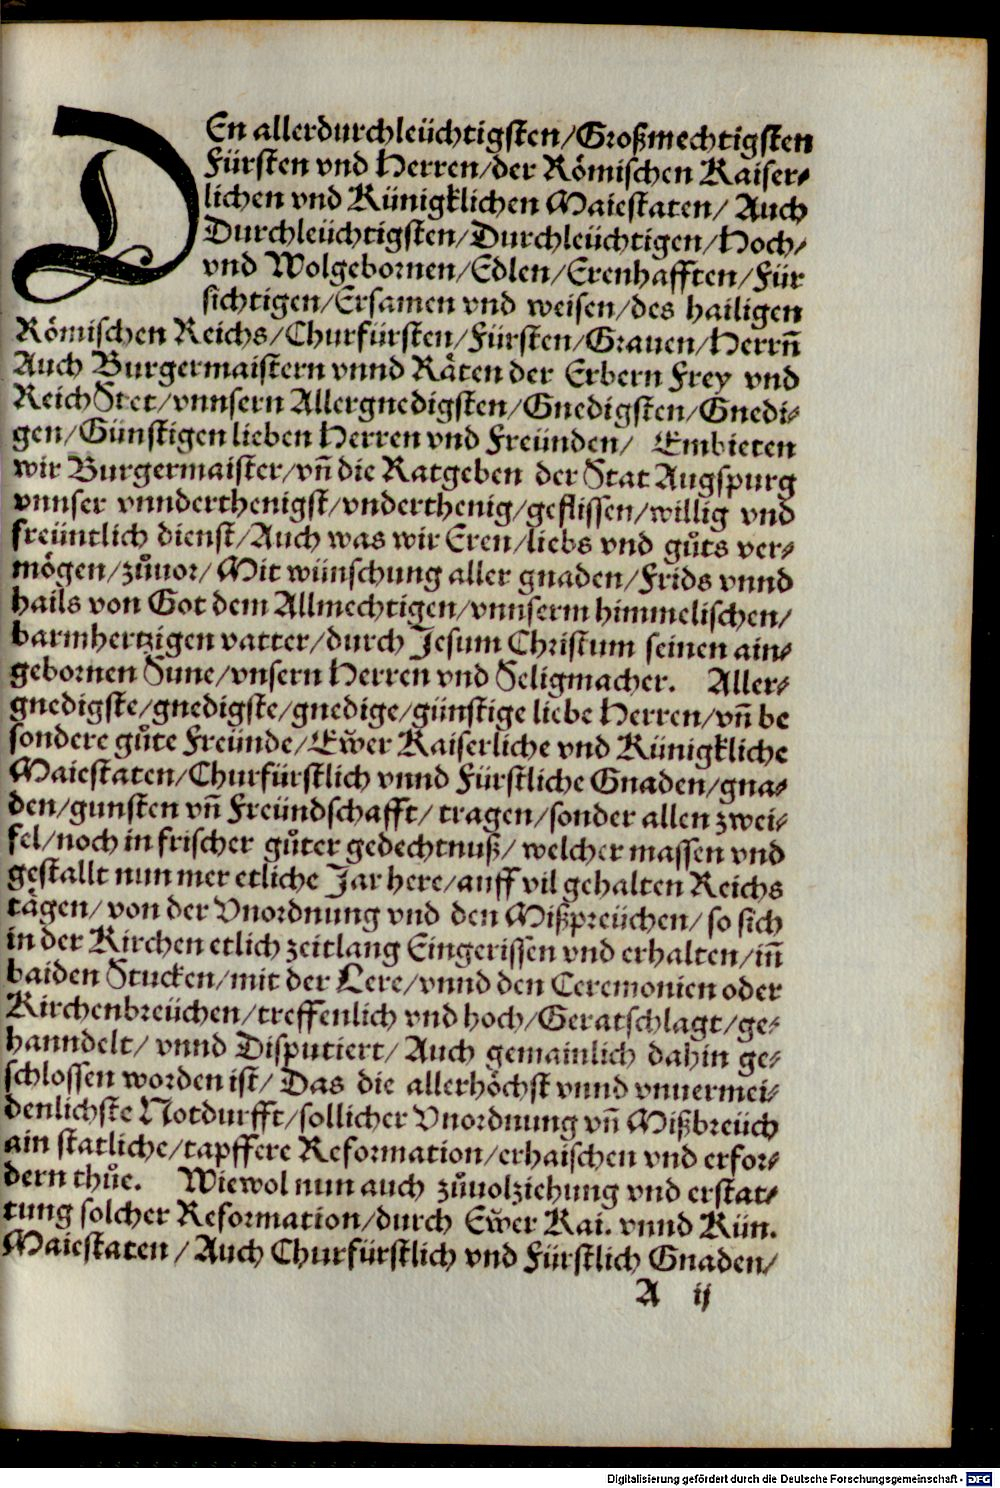 DEn allerdurchleüchtigsten/Großmechtigsten
Fürsten vnd Herren/der Römischen Kaiser⸗
lichen vnd Künigklichen Maiestaten/ Auch
Durchleüchtigsten/Durchleüchtigen/Hoch⸗
vnd Wolgebornen/Edlen/Erenhafften/Für
sichtigen/Ersamen vnd weisen/des hailigen
Römischen Reichs/Churfürsten/Fürsten/Grauen/Herrn̄
Auch Burgermaistern vnnd Räten der Erbern Frey vnd
ReichStet/vnnsern Allergnedigsten/Gnedigsten/Gnedi⸗
gen/Günstigen lieben Herren vnd Freünden/ Embieten
wir Burgermaister/vn̄ die Ratgeben der Stat Augspurg
vnnser vnnderthenigst/vnderthenig/geflissen/willig vnd
freüntlich dienst/Auch was wir Eren/liebs vnd gůts ver⸗
mögen/zůuor/ Mit wünschung aller gnaden/Frids vnnd
hails von Got dem Allmechtigen/vnnserm himmelischen/
barmhertzigen vatter/durch Jesum Christum seinen ain⸗
gebornen Sune/vnsern Herren vnd Seligmacher. Aller⸗
gnedigste/gnedigste/gnedige/günstige liebe Herren/vn̄ be
sondere gůte Freünde/Ew̌er Kaiserliche vnd Künigkliche
Maiestaten/Churfürstlich vnnd Fürstliche Gnaden/gna⸗
den/gunsten vn̄ Freündschafft/ tragen/sonder allen zwei⸗
fel/noch in frischer gůter gedechtnuß/ welcher massen vnd
gestallt nun mer etliche Jar here/auff vil gehalten Reichs
tägen/ von der Vnordnung vnd den Mißpreüchen/ so sich
in der Kirchen etlich zeitlang Eingerissen vnd erhalten/in̄
baiden Stucken/mit der Lere/vnnd den Ceremonien oder
Kirchenbreüchen/treffenlich vnd hoch/Geratschlagt/ge⸗
hanndelt/ vnnd Disputiert/ Auch gemainlich dahin ge⸗
schlossen worden ist/ Das die allerhöchst vnnd vnuermei⸗
denlichste Notdurfft/sollicher Vnordnung vn̄ Mißbreüch
ain statliche/tapffere Reformation/erhaischen vnd erfor⸗
dern thůe. Wiewol nun auch zůuolziehung vnd erstat⸗
tung solcher Reformation/durch Ew̌er Kai. vnnd Kün.
Maiestaten / Auch Churfürstlich vnd Fürstlich Gnaden/
A ij
Digitalisierung gefördert durch die Deutsche Forschungsgemeinschaft - DFG